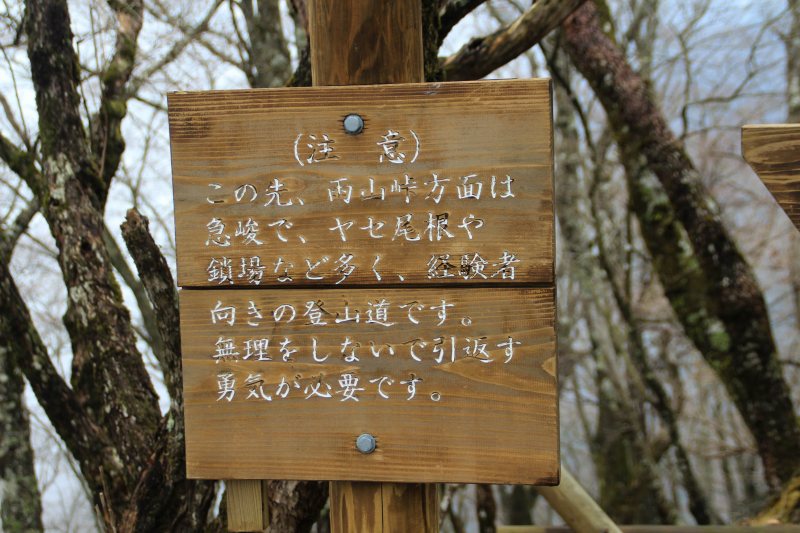 (注　意)
この先、雨山峠方面は
急峻で、ヤセ尾根や
鎖場など多く、経験者
向きの登山道です。
無理をしないで引返す
勇気が必要です。